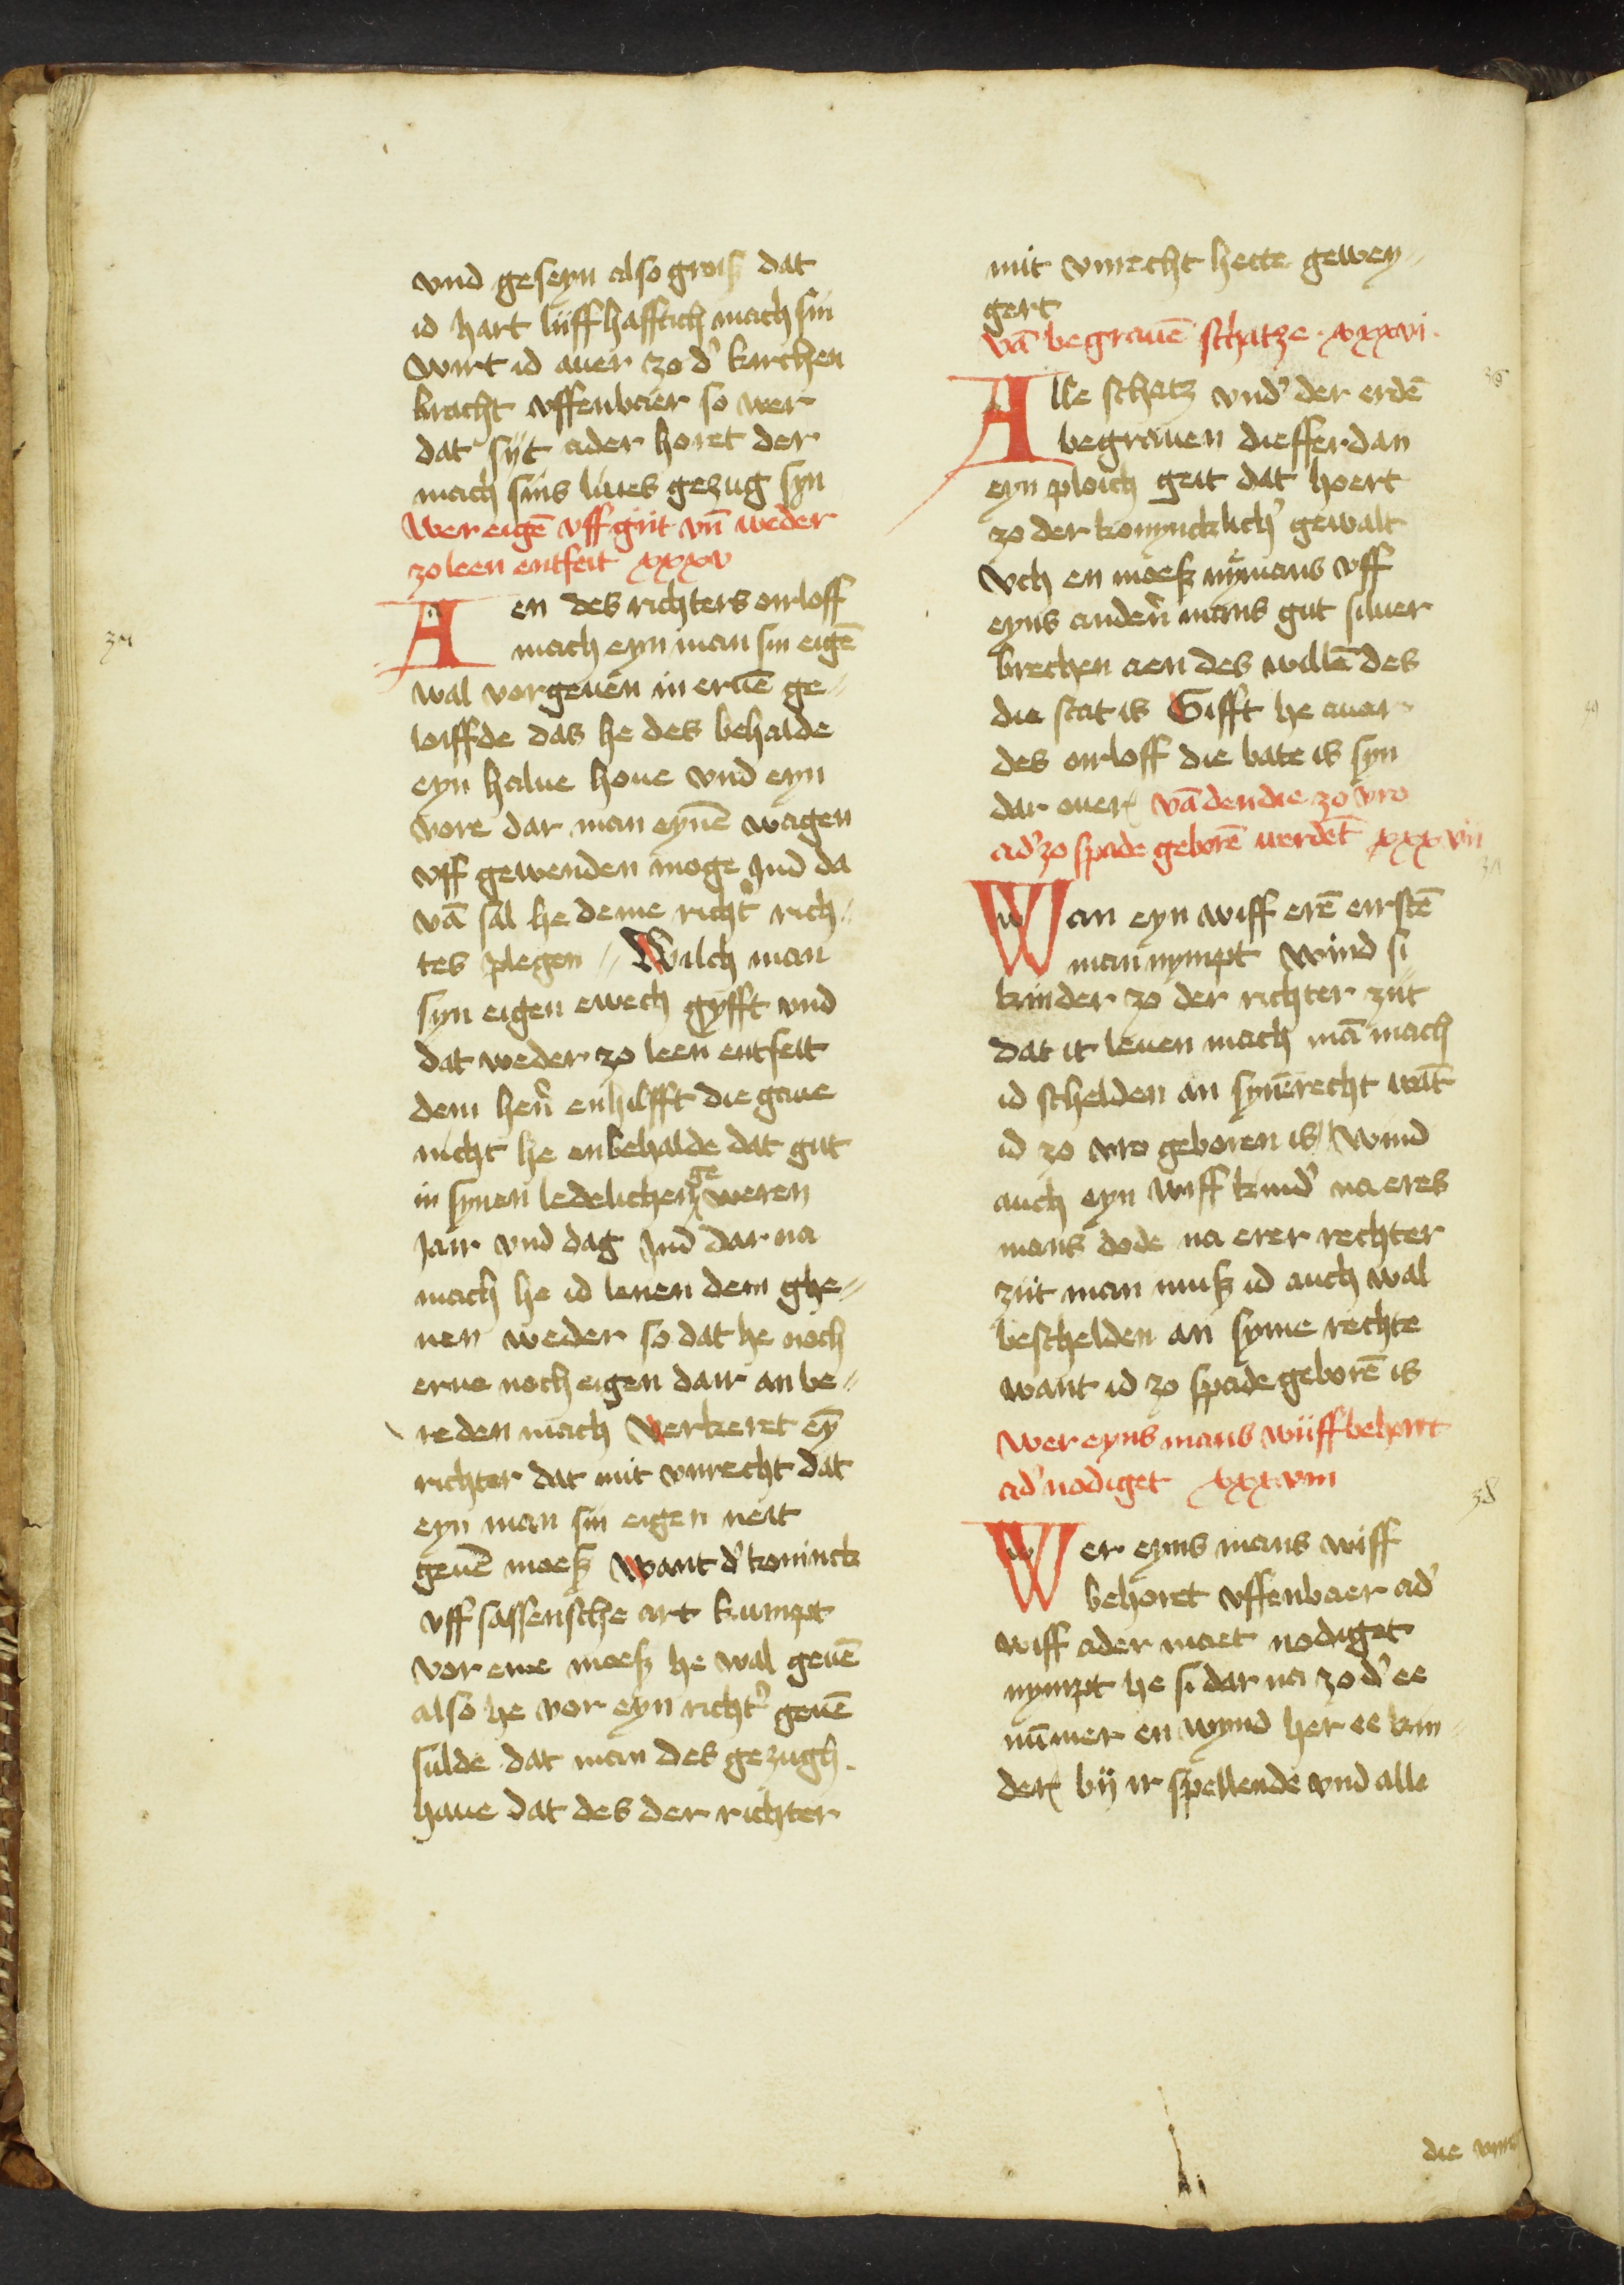 vnd geseyn also groiß dat
id hart lüffhafftich mach sin
Wirt id auer zo d' kirchen
bracht vffenbaer so wer
dat süt ader horet der
mach sins liues gezug syn
Wer eigē vff giit vn̄ weder
zo leen entfeit xxxv
Aen des richters orloff
mach eyn man sin eigē
wal vorgeuen in eruē ge¬
loiffde das he des behalde
eyn halue houe vnd eyn
vore dar man eynē wagen
vff gewenden moge Jnd da
vā sal he deme richt' rich¬
tes plegen Wilch man
syn eigen ewech gyfft vnd
dat weder zo leen entfeit
dem hen̄ enhilfft die gaue
nicht he enbehalde dat gut
in synen ledelichen geweren
Jair vnd dag Jnd dar na
mach he id lenen dem ghe¬
nen weder so dat he noch
erue noch eigen dair an be¬
reden mach Verkeret eȳ
richter dat mit vnrecht dat
eyn man sin eigen neit
geuē moeß Want d' koninck
vff sassensche art kumpt
vor eme moeß he wal geuē
also he vor eyn richt' geuē
sulde dat man des gezugh
haue dat des der richter
mit vnrecht hette gewey¬
gert
vā begrauē schatze xxxvi.
Alle schatz vnd' der erdē
begrauen diefferdan
eyn ploich geit dat hoert
zo der konyncklich' gewalt
Och en moeß nymans vff
eyns anden̄ mans gut siluer
brechen aen des willē des
die stat is Gifft he auer
des orloff die bate is syn
dar ouer vā den die zo vro
ad' zo spade geborē werdēt xxxvii
Wan eyn wiff erē eirstē
man nympt Wind si
kinder zo der richter züt
dat it leuen mach mā mach
id schelden an synē recht wāt
id zo vro geboren is Wind
auch eyn wiff kind' na eres
mans dode na erer rechter
züt man muß id auch wal
beschelden an syme rechte
want id zo spade geborē is
Wer eyns mans wüff behoret
ad' nodiget xxxviii
Wer eyns mans wiff
behoret vffenbaer ad'
wiff ader maet nodiget
nympt he si dar na zo d' ee
nūmer en wynd her ee kin¬
der bij ir spellende vnd alle
die